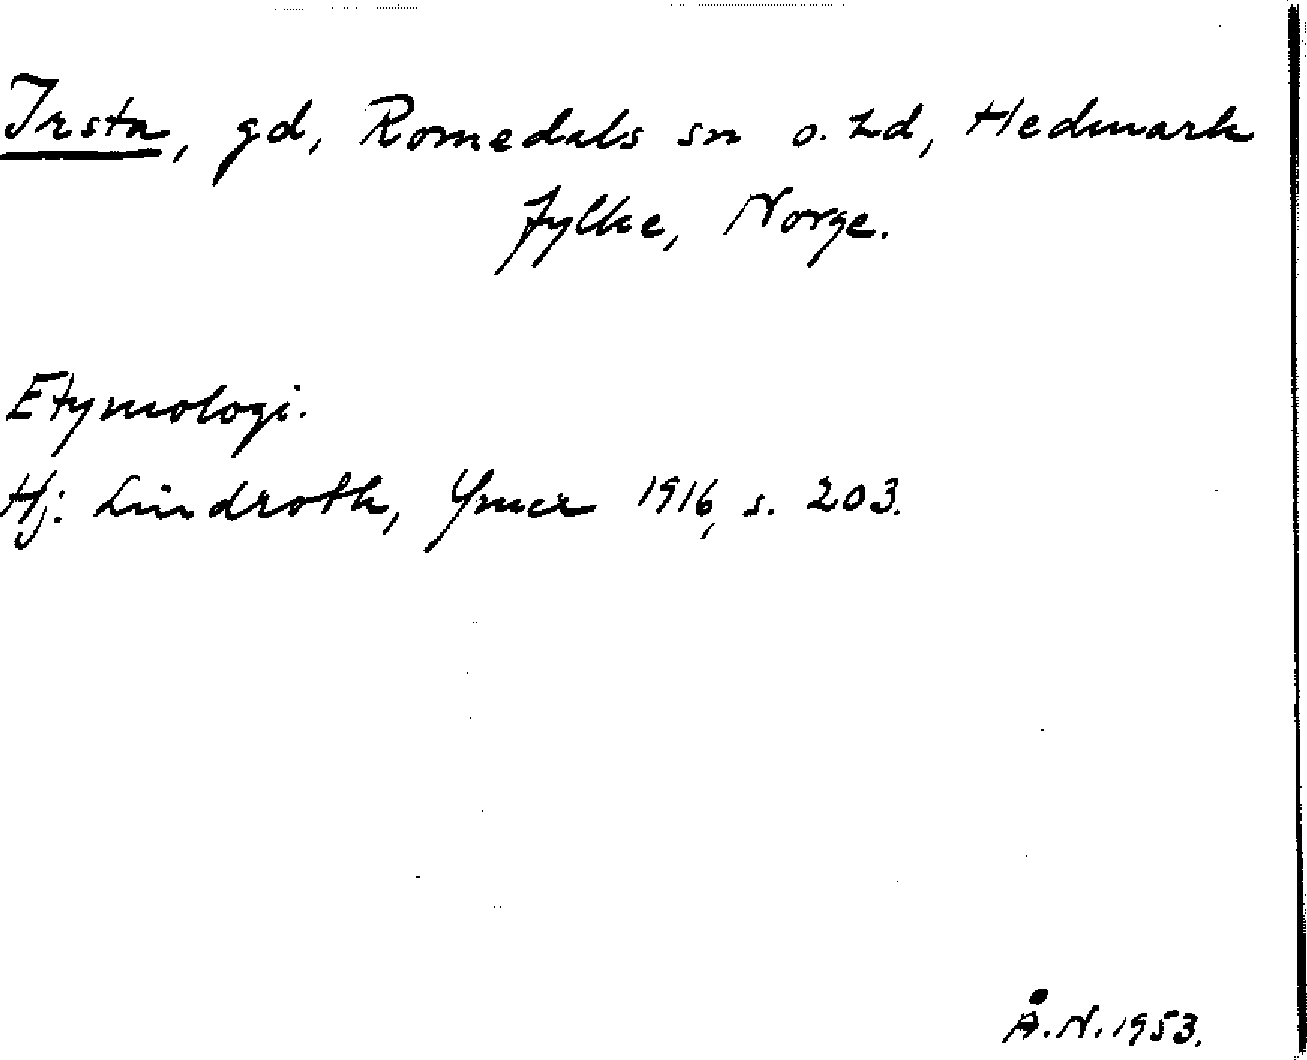 Irsta, gd, Romedals sn o. hd, Hedmark
fylke, Norge.
Etymologi.
Hj. Lindroth, Ymer 1916, s. 203.
Å.N. 1953.